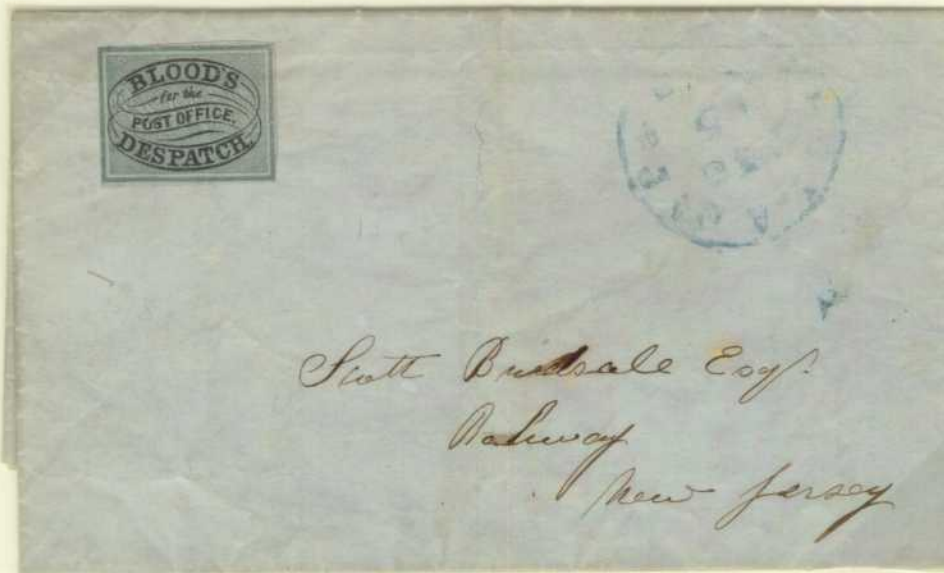 BLOOD'S
for the
POST OFFICE.
DESPATCH.
Scott Birdsale Esq.
Rahway
New Jersey